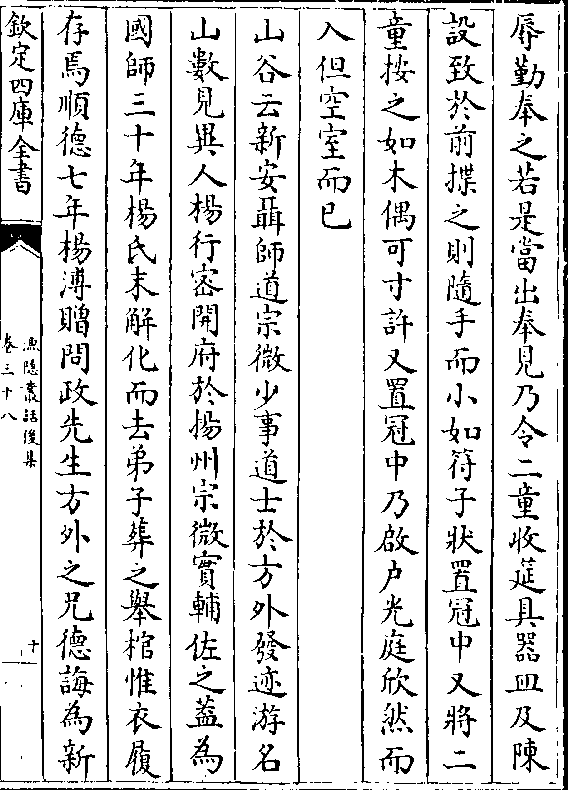 辱勤奉之若是當出奉見乃令二童收筵具器皿及陳
設致於前揲之則隨手而小如符子狀置冠中又將二
童按之如木偶可寸許又置冠中乃啟户光庭欣然而
入但空室而已
山谷云新安聶師道宗微少事道士於方外發迹游名
山數見異人楊行密開府於揚州宗微實輔佐之葢為
國師三十年楊氏末解化而去弟子葬之舉棺惟衣履
存焉順德七年楊溥贈問政先生方外之兄德誨為新
欽定四庫全書
漁隱叢話後集
卷三十八
十